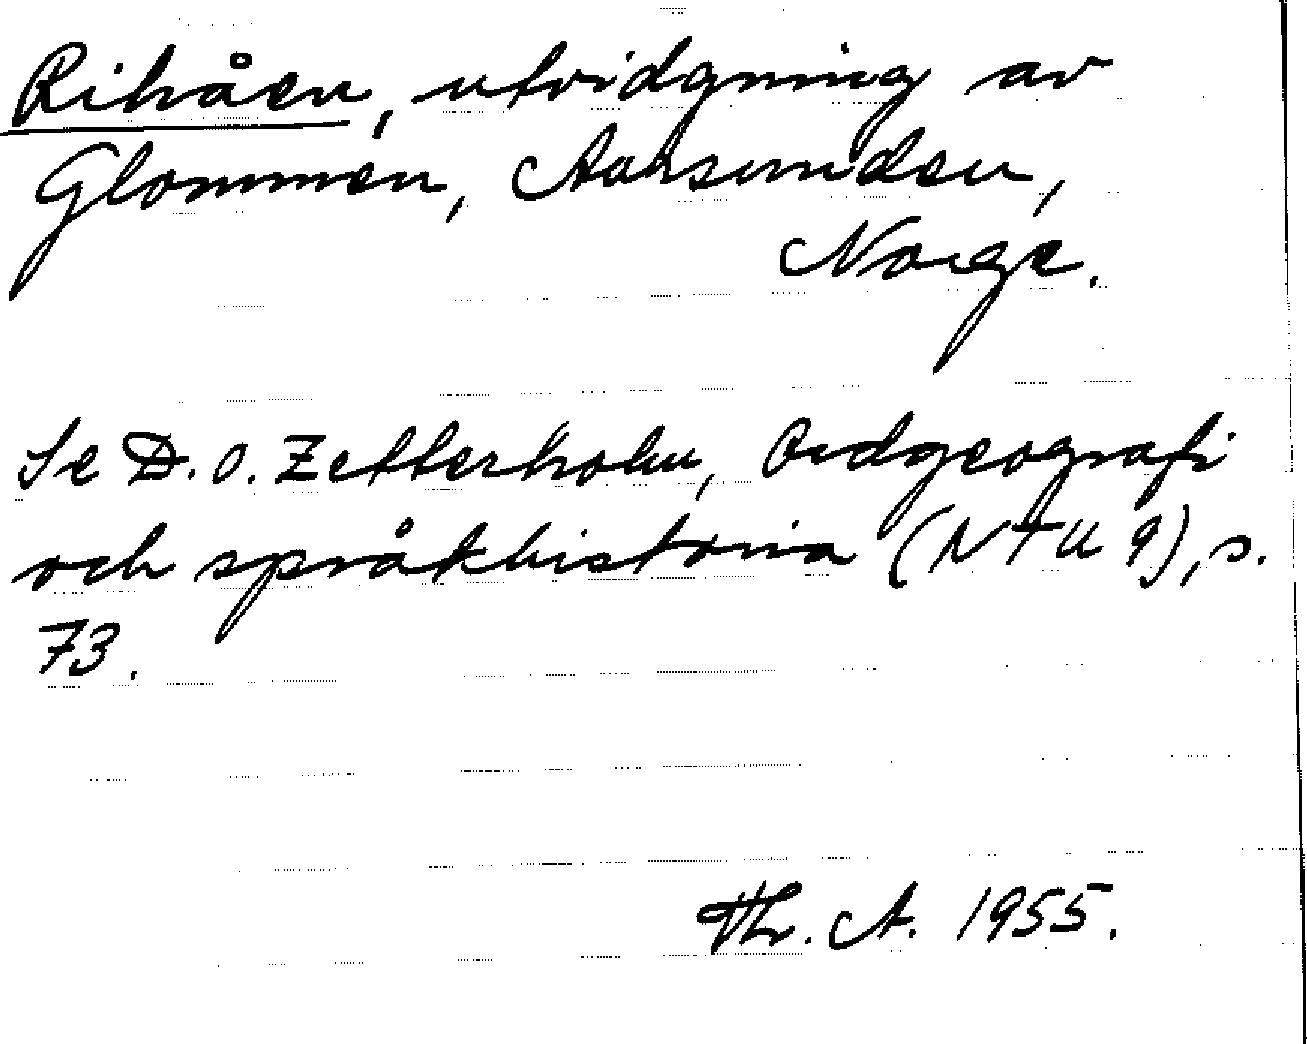 Rihåen, utvidgning av
Glommen, Aursunden,
Norge.
Se D. O. Zetterholm, Ordgeografi
och språkhistoria (NTU 9), s.
73.
Th. A. 1955.